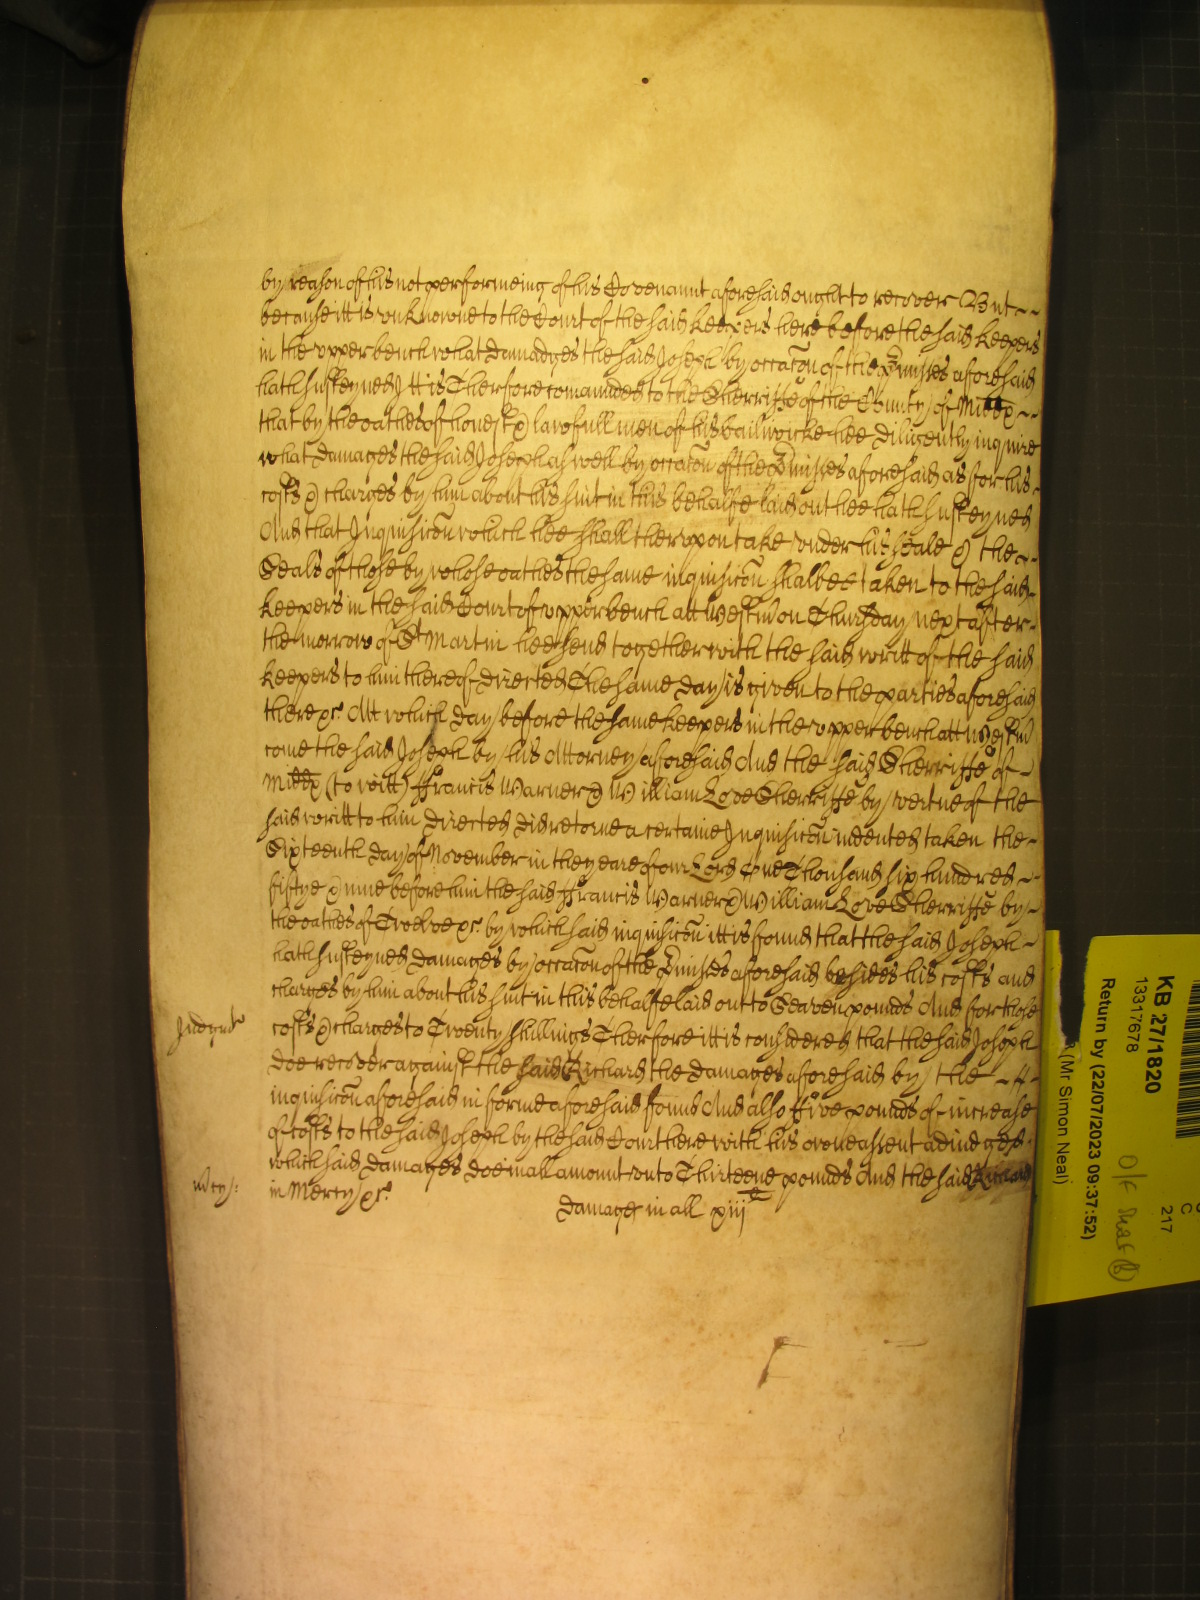 by reason of his not performeing of his Covenannt aforesaid ought to recover But
because itt is unknowne to the Court of the said keepers here before the said keepers
in the upper bench what damadges the said Joseph by occac̃on of the p̃misses aforesaid
hath susteyned Itt is Therfore comaunded to the Sherriffe of the County of Middx
that by the oathes of honest & lawfull men of his bailiwicke hee diligently inquire
what damages the said Joseph as well by occac̃on of the p̃misses aforesaid as for his
costs & charges by him about his suit in this behalfe laid out hee hath susteyned
And that Inquisic̃on which hee shall therupon take under his seale & the
Seals of those by whose oathes the same inquisic̃on shalbee taken to the said
keepers in the said Court of upper bench att Westm̃ on Thursday next after
the morrow of St Martin hee send together with the said writt of the said
keepers to him thereof directed The same day is given to the parties aforesaid
there &c. Att which day before the same keepers in the upper bench att Westm̃
come the said Joseph by his Attorney aforesaid And the said Sherriffe of
Middx (to witt) Francis Warner & William Love Sherriffe by vertue of the
said writt to him directed did retorne a certaine Inquisic̃on indented taken the
Sixteenth day of November in the yeare of our Lord One Thousand six hundred
fiftye & nine before him the said Francis Warner & William Love Sherriffe by
the oathes of Twelve &c. by which said inquisic̃on itt is found that the said Joseph
hath susteyned damages by occac̃on of the p̃misses aforesaid besides his costs and
charges by him about his suit in this behalfe laid out to Seaven pounds And for those
Judgmt costs & charges to Twenty shillings Therfore itt is considered that the said Joseph
doe recover against the said Richard the damages aforesaid by the
inquisic̃on aforesaid in forme aforesaid found And also Five pounds of increase
of costs to the said Joseph by the said Court here with his owne assent adiudged
which said damages doe in all amount unto Thirteene pounds And the said Richard
mcy/: in Mercy &c.
damages in all xiij£
KB 27/1820
13317678
Return by (22/07/2023 09:37:52)
(Mr Simon Neal)
C
217